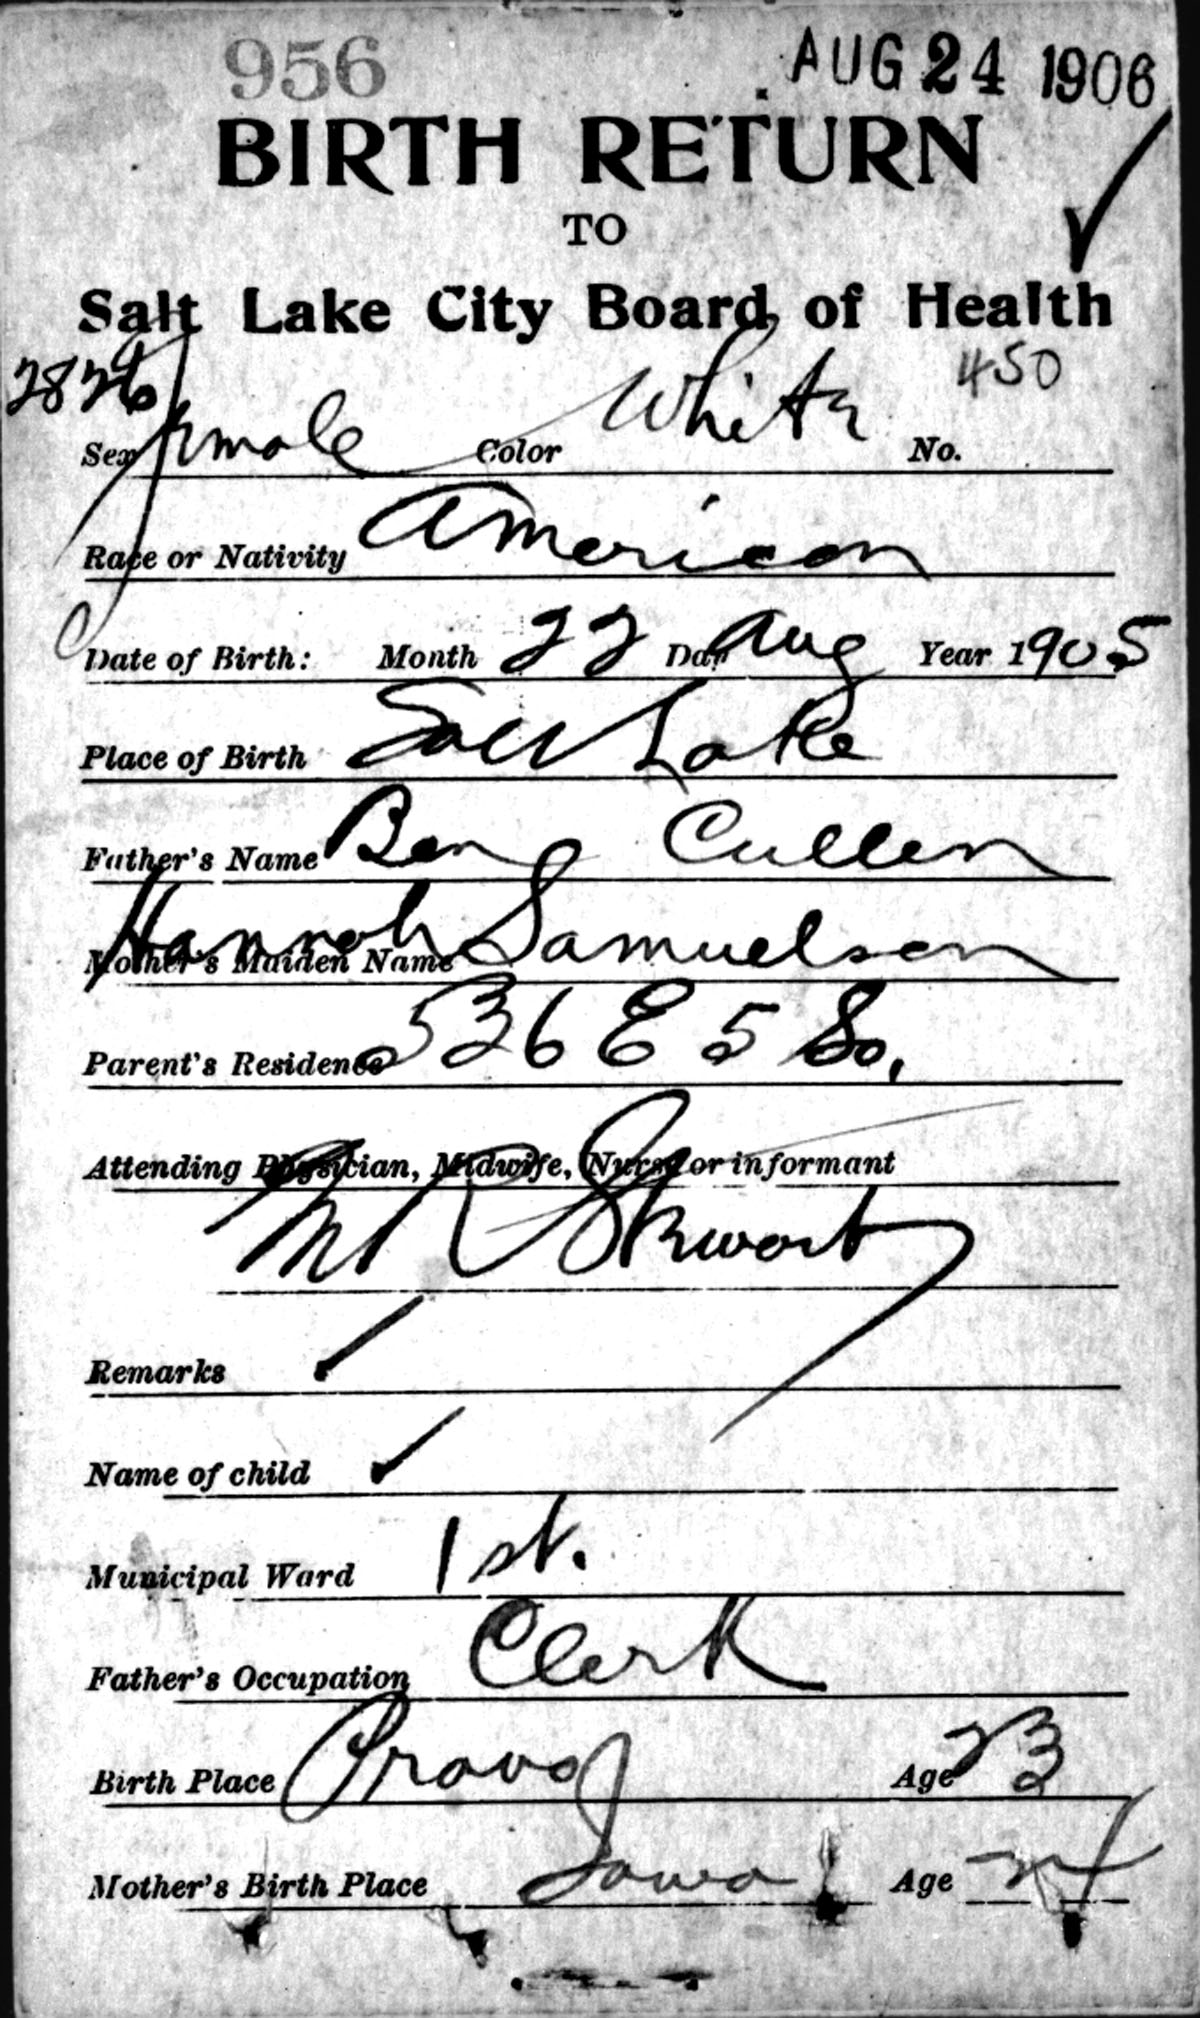 956 AUG 24 1906
BIRTH RETURN
TO
Salt Lake City Board of Health
2826 450
Sex female Color White No.
Race or Nativity American
Date of Birth: Month 22 Day Aug Year 1905
Place of Birth Salt Lake
Father's Name Benj Cullen
Hannah Samuelson
Mother's Maiden Name
Parent's Residence 536 E 5 So.
Attending Physician, Midwife, Nurse or informant
Stewart
Remarks
Name of child
Municipal Ward 1st.
Father's Occupation Clerk
Birth Place Provo Age 23
Mother's Birth Place Iowa Age